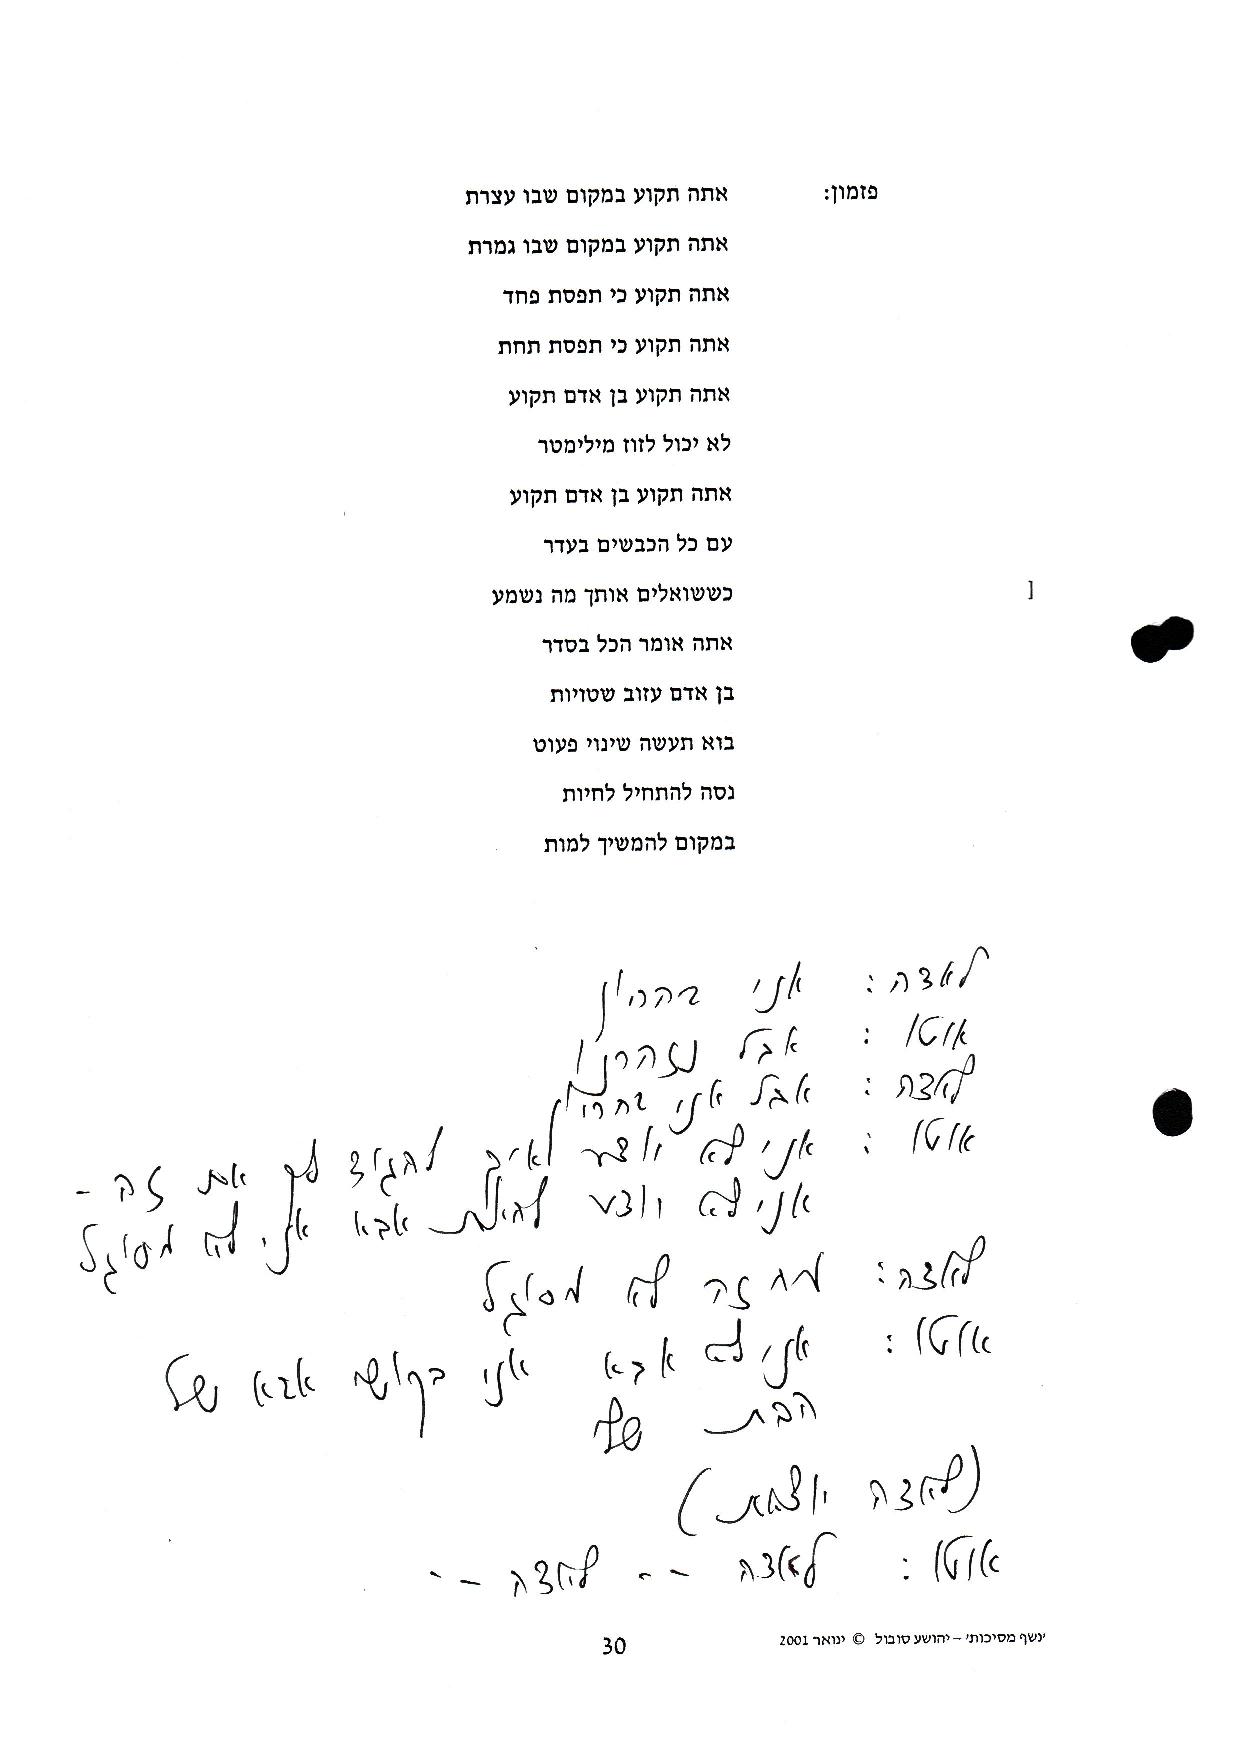 פזמון: אתה תקוע במקום שבו עצרת
אתה תקוע במקום שבו גמרת
אתה תקוע כי תפסת פחד
אתה תקוע כי תפסת תחת
אתה תקוע בן אדם תקוע
לא יכול לזוז מילימטר
אתה תקוע בן אדם תקוע
עם כל הכבשים בעדר
[ כששואלים אותך מה נשמע
אתה אומר הכל בסדר
בן אדם עזוב שטויות
בוא תעשה שינוי פעוט
נסה להתחיל לחיות
במקום להמשיך למות
לאצה: אני בהריון
אוטו: אבל נזהרנו
לאצה: אבל אני בהריון
אוטו: אני לא יודע איך להגיד לך את זה -
אני לא רוצה להיות אבא אני לא מסוגל
לאצה: מה זה לא מסוגל
אוטו: אני לא אבא אני בקושי אבא של
הבת שלי
(לאצה יוצאת)
אוטו: לאצה -- לאצה --
'נשף מסיכות' – יהושע סובול © ינואר 2001
30